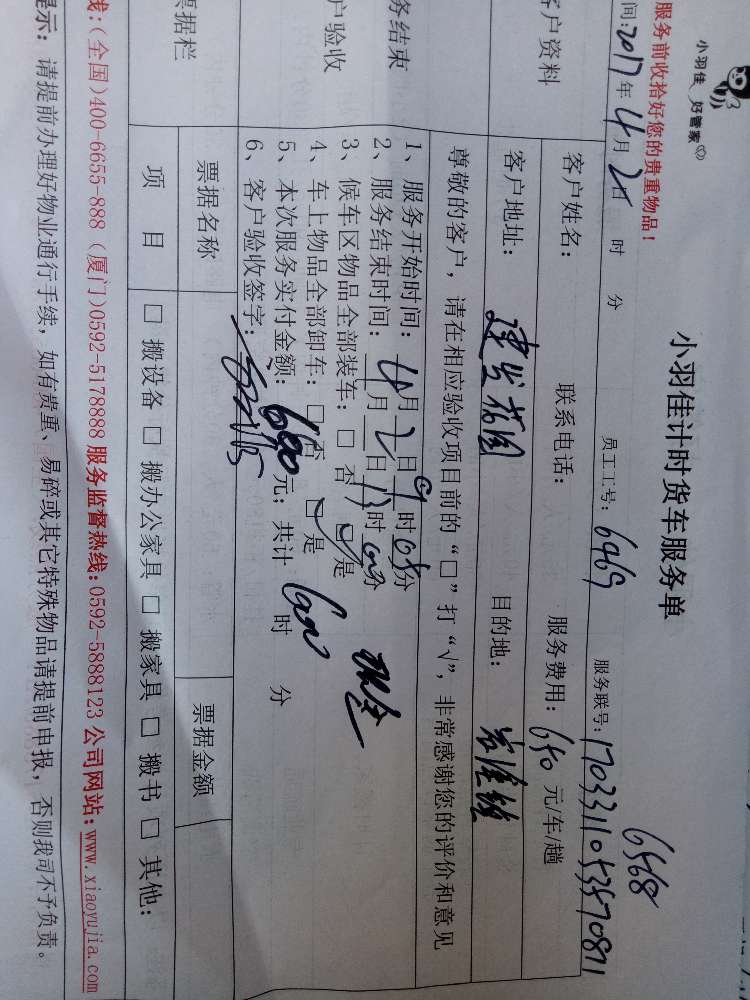 小羽佳 好管家
服务前收拾好您的贵重物品！
小羽佳计时货车服务单
6568
间:2017年4月2日 时 分 员工工号: 6969 服务联号: 1703311053570811
客户资料
客户姓名: 联系电话: 服务费用: 640 元/车/趟
客户地址: 建发花园 目的地:
尊敬的客户，请在相应验收项目前的“□”打“√”，非常感谢您的评价和意见
务结束
户验收
1、服务开始时间: 4月2日09时08分
2、服务结束时间: 4月2日13时00分
3、候车区物品全部装车: □ 否 □ 是
4、车上物品全部卸车: □ 否 □ 是 现金
5、本次服务实付金额: 600元; 共计 时 分
600
6、客户验收签字:
票据栏
票据名称 票据金额
项 目 □ 搬设备 □ 搬办公家具 □ 搬家具 □ 搬书 □ 其他:
线:(全国)400-6655-888 (厦门)0592-5178888 服务监督热线:0592-5888123 公司网站:www.xiaoyujia.com
提示: 请提前办理好物业通行手续，如有贵重、易碎或其它特殊物品请提前申报，否则我司不予负责。